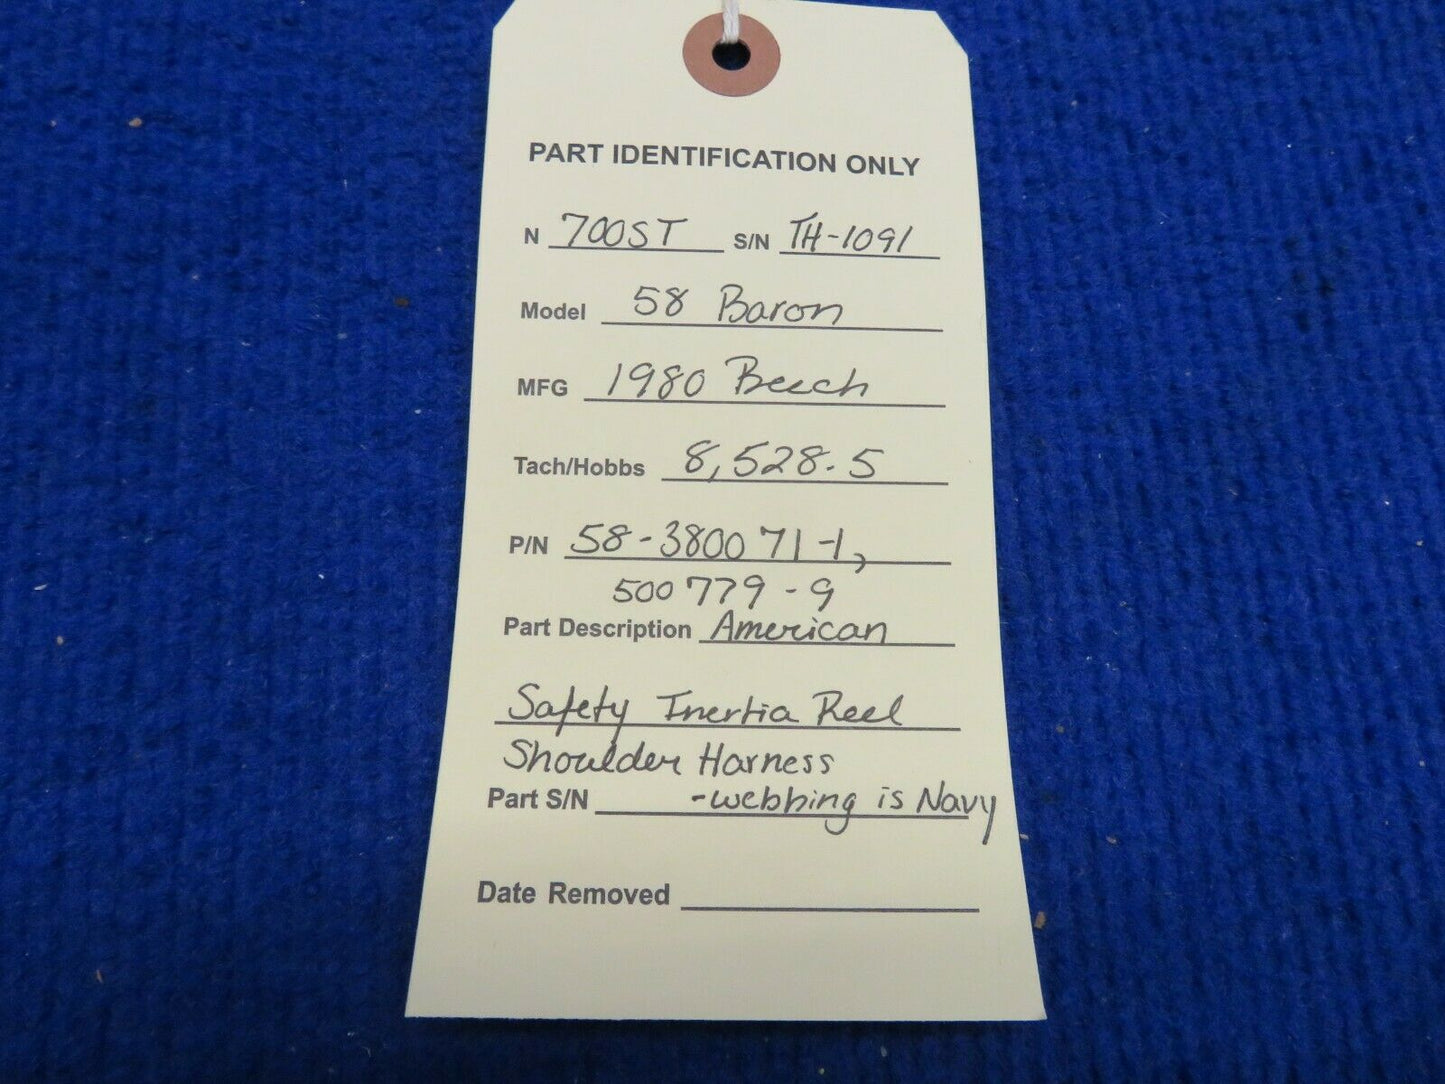 PART IDENTIFICATION ONLY
N 700ST S/N TH-1091
Model 58 Baron
MFG 1980 Beech
Tach/Hobbs 8,528.5
P/N 58-380071-1,
500779-9
Part Description American
Safety Inertia Reel
Shoulder Harness
Part S/N -webbing is Navy
Date Removed